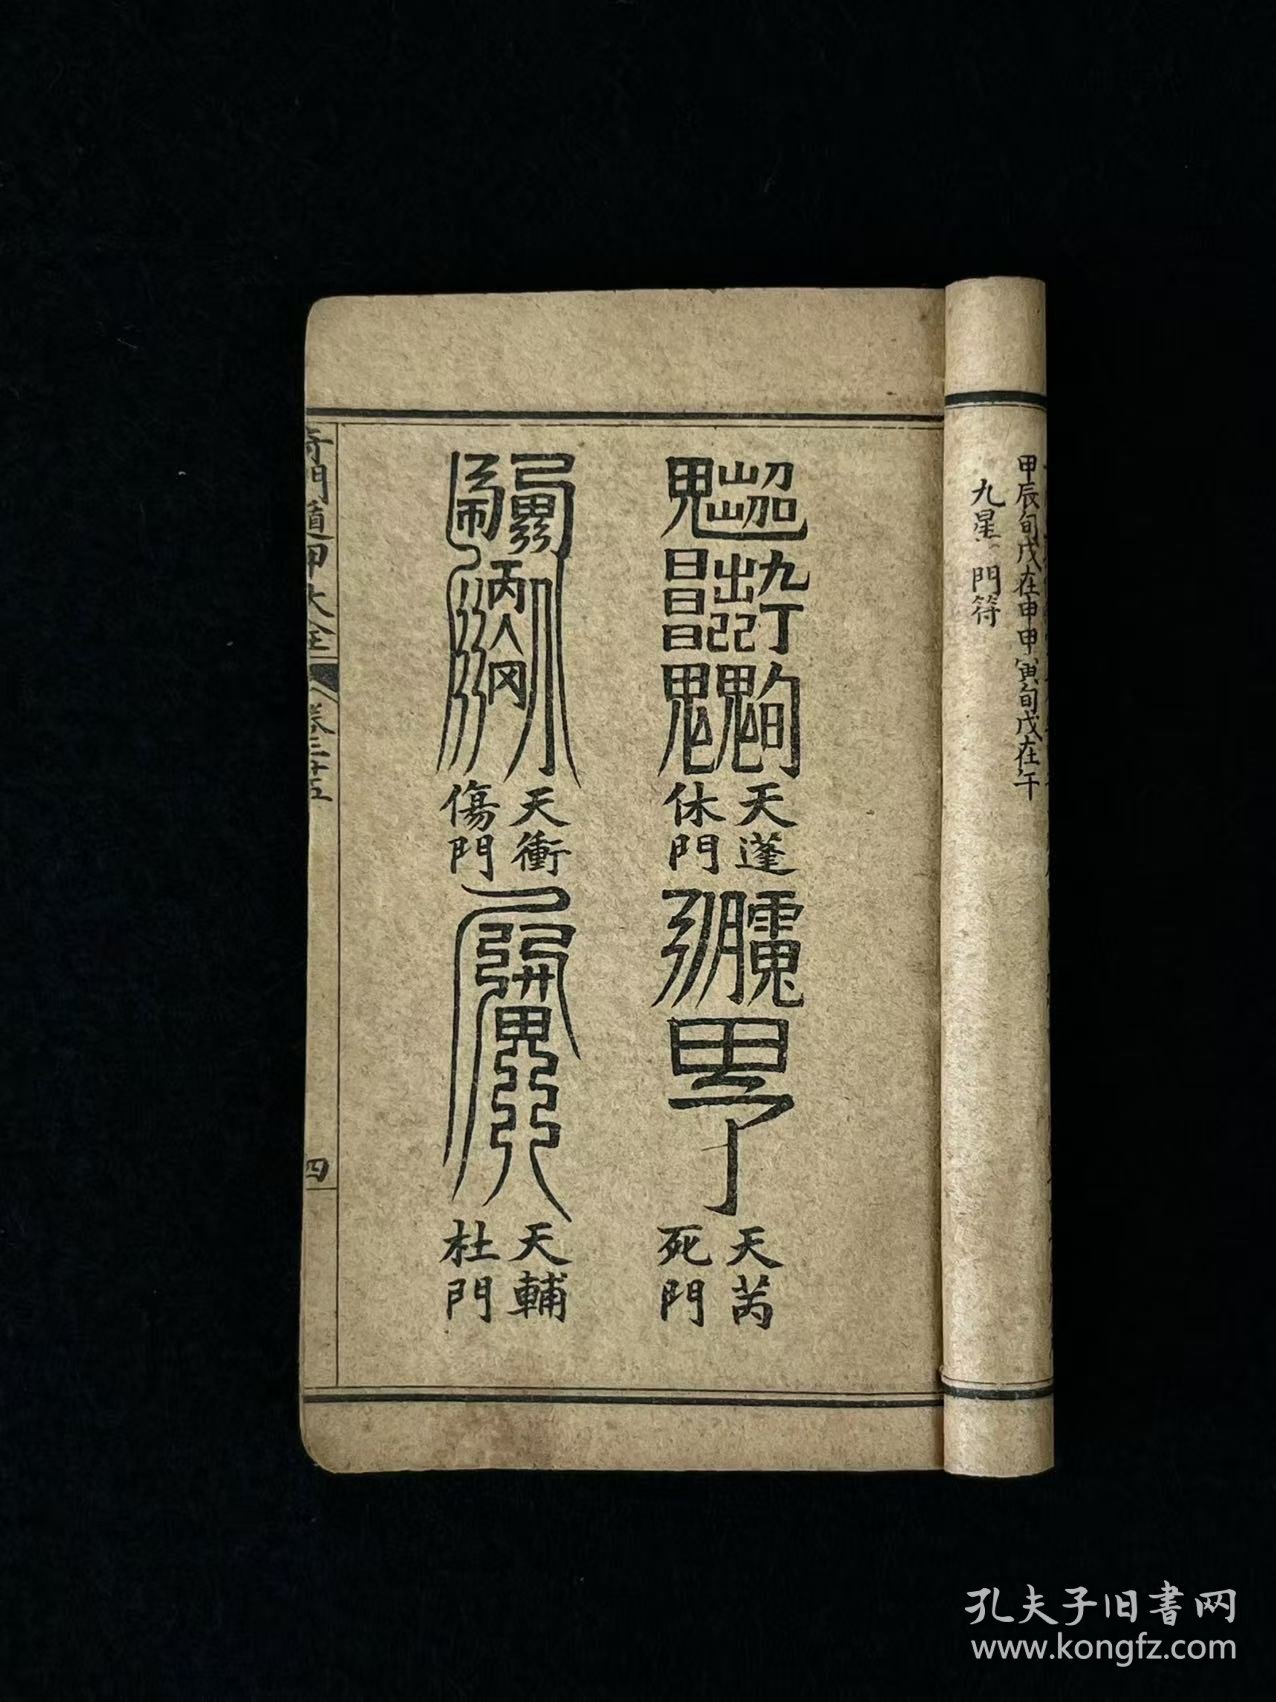 甲辰旬戊在申甲寅旬戊在午
九星八門符
天蓬
休門
天芮
死門
天衝
傷門
天輔
杜門
奇門遁甲大全
卷三十五
四
孔夫子旧書网
www.kongfz.com